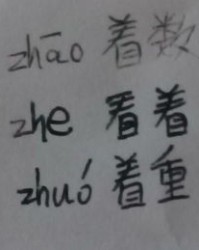 zhāo 着数
zhe 看着
zhuó 着重